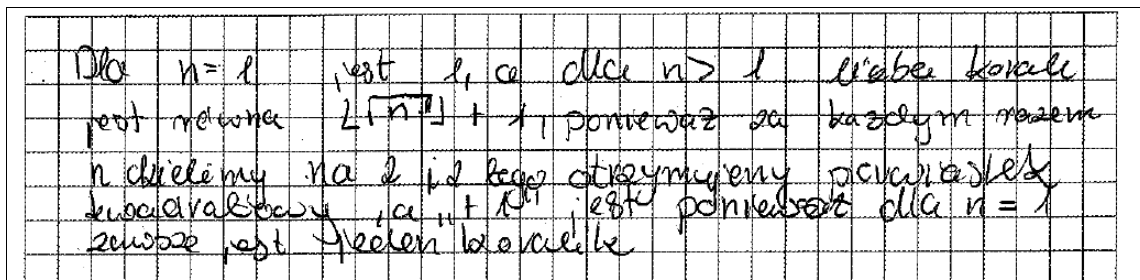 Dla n=1 jest 1, a dla n>1 liczba korali
jest równa ⌊√n⌋ + 1, ponieważ za każdym razem
n dzielimy na 2 i z tego otrzymujemy pierwiastek
kwadratowy, a „+ 1" jest ponieważ dla n = 1
zawsze jest jeden koralik